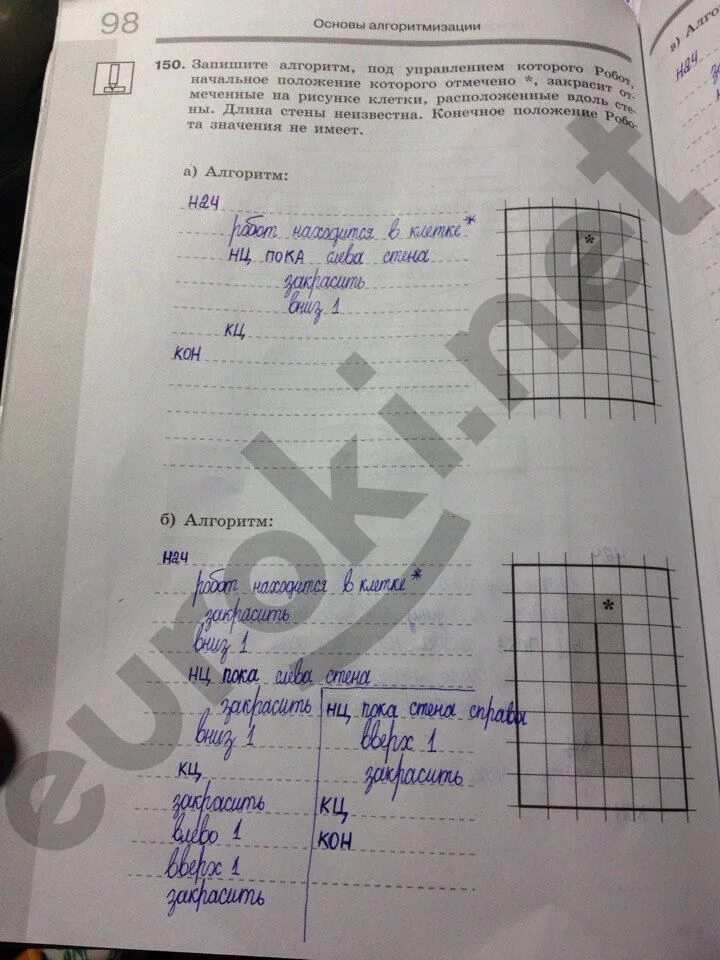 98
Основы алгоритмизации
150. Запишите алгоритм, под управлением которого Робот,
начальное положение которого отмечено *, закрасит от-
меченные на рисунке клетки, расположенные вдоль сте-
ны. Длина стены неизвестна. Конечное положение Робо-
та значения не имеет.
а) Алгоритм:
нач
робот находится в клетке *
нц пока слева стена
закрасить
вниз 1
кц
кон
*
б) Алгоритм:
нач
робот находится в клетке *
закрасить
вниз 1
нц пока слева стена
закрасить
вниз 1
кц
закрасить
влево 1
вверх 1
закрасить
нц пока стена справа
вверх 1
закрасить
кц
кон
*
в) Алго
нач
euroki.net